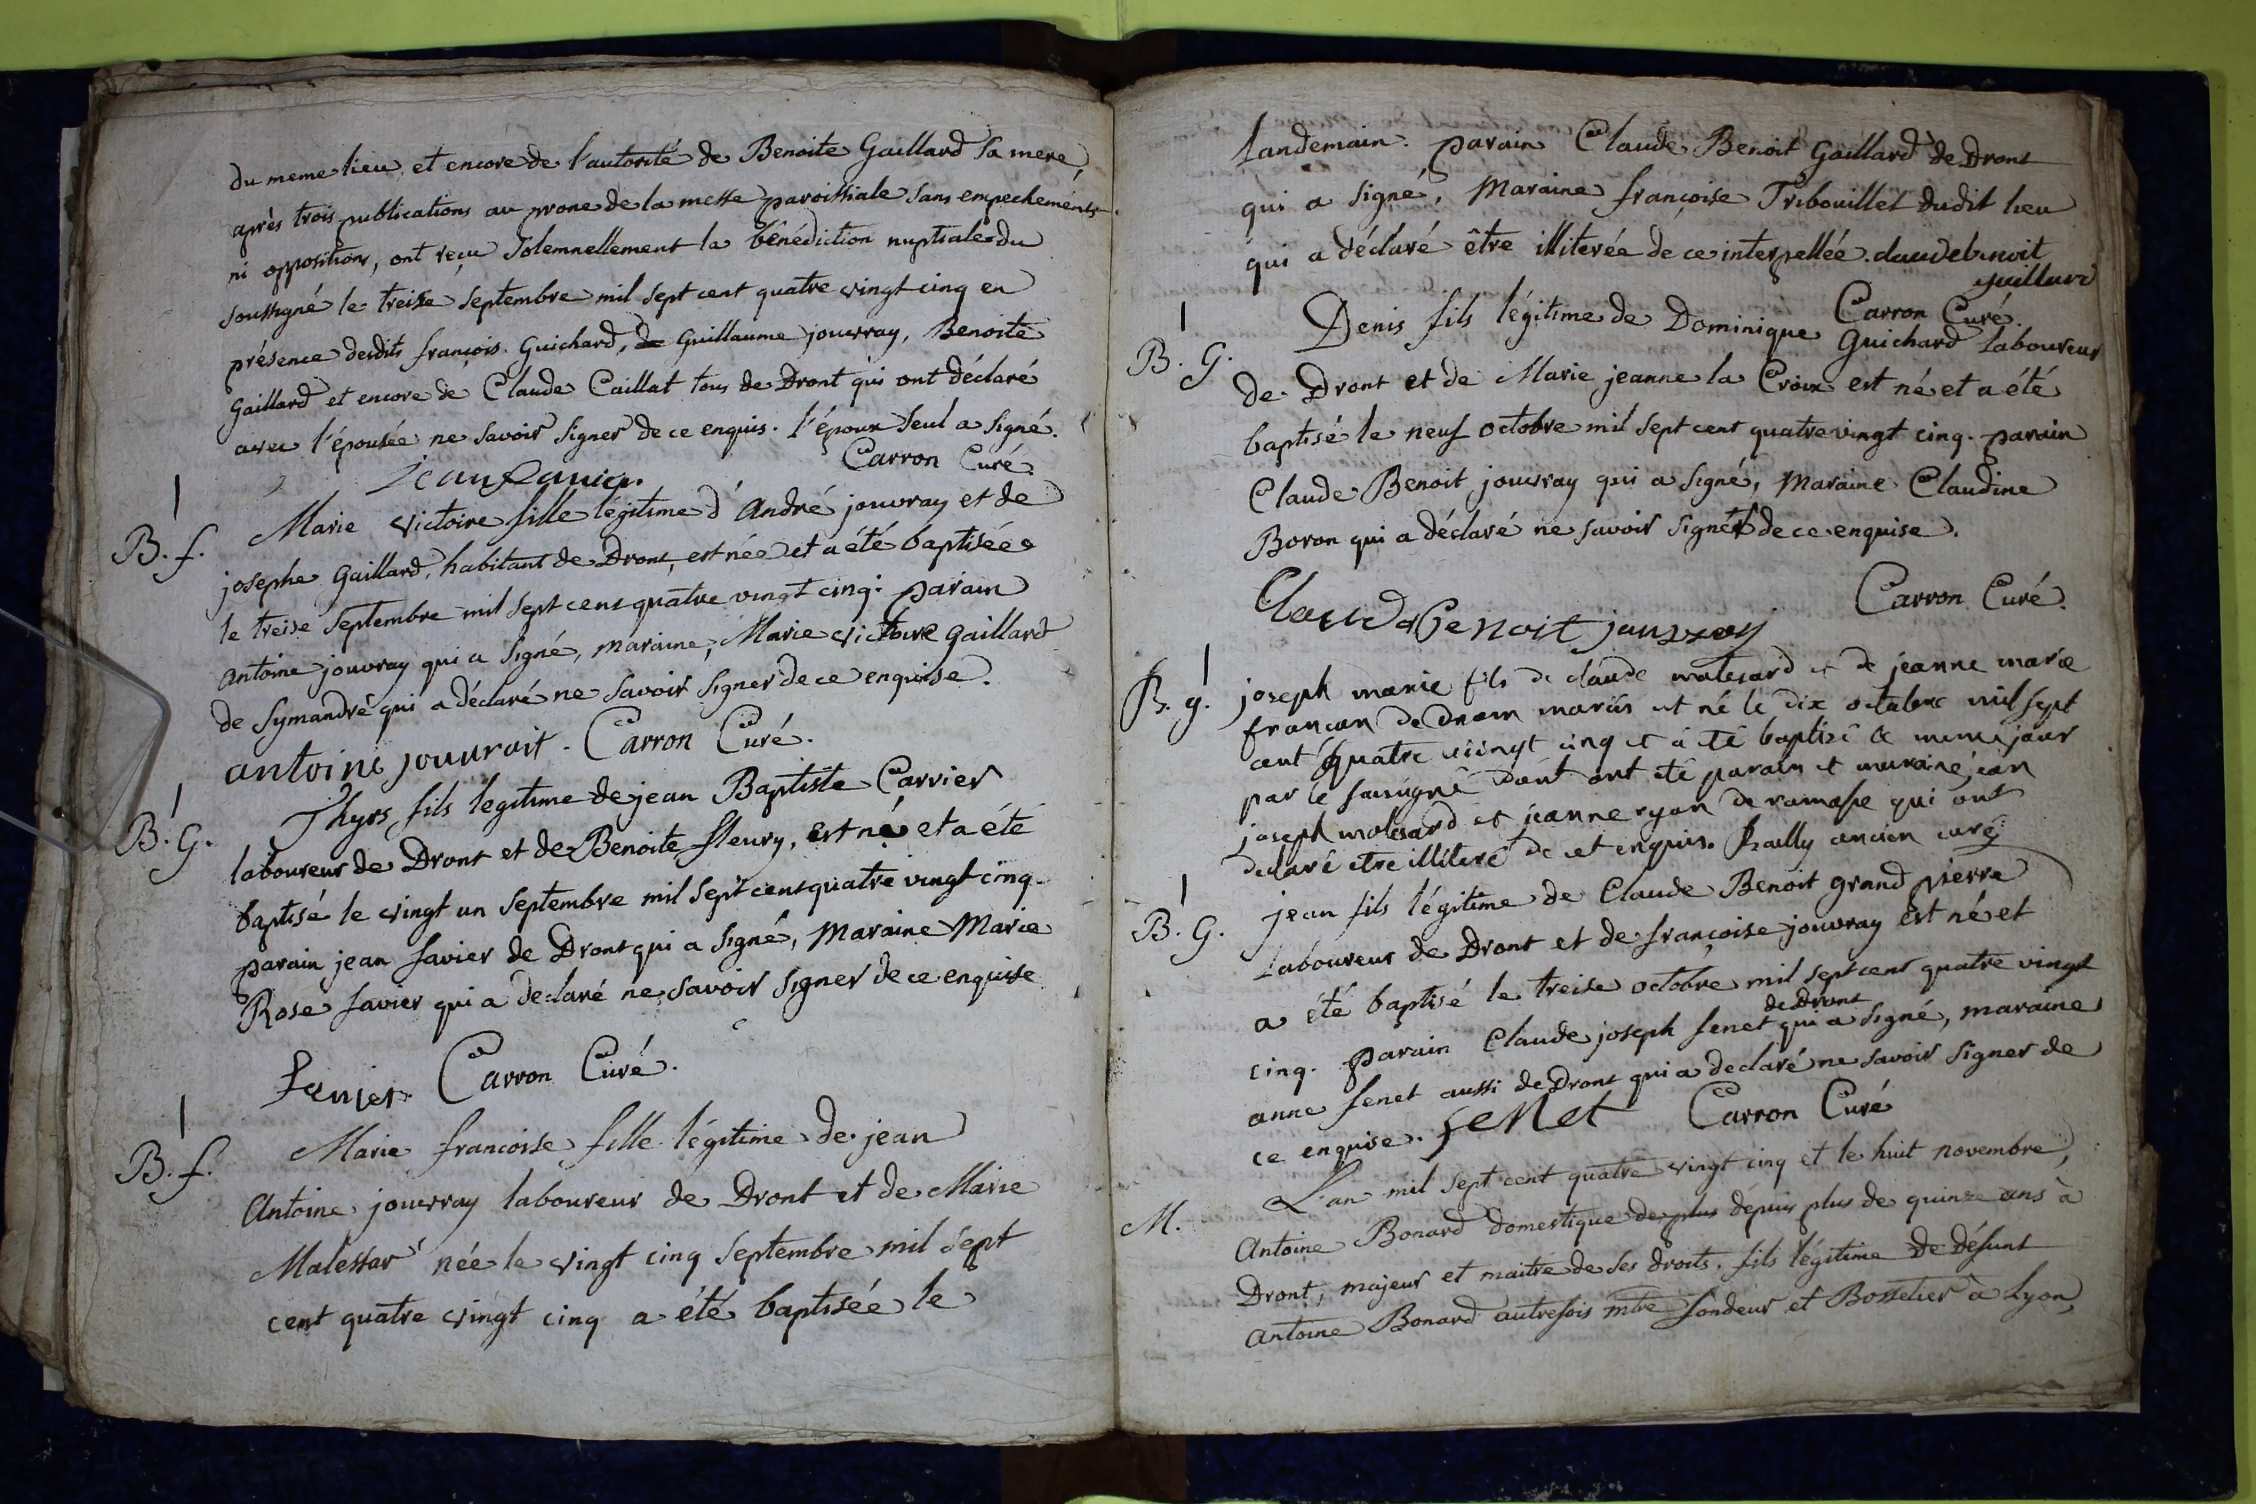 du meme lieu, et encore de l'autorité de Benoite Gaillard sa mere,
après trois publications au prone de la messe paroissiale sans empechements
ni oppositions, ont reçu solemnellement la bénédiction nuptiale du
soussigné le treize septembre mil sept cent quatre vingt cinq en
présence desdits françois Guichard, Guillaume jouvray, Benoite
Gaillard et encore de Claude Caillat tous de Dront qui ont déclaré
avec l'épousée ne savoir signer de ce enquis. l'époux seul a signé.
Carron Curé.
B. f. Marie victoire fille légitime d'André jouvray et de
josephe Gaillard, habitant de Dront, est née et a été baptisée
le treise septembre mil sept cent quatre vingt cinq. parain
antoine jouvray qui a signé, maraine, Marie victoire gaillard
de symandré qui a déclaré ne savoir signer de ce enquise.
antoine jouvrait. Carron Curé.
B. G. Thyrs fils legitime de jean Baptiste Carrier
laboureur de Dront et de Benoite fleury, est né et a été
baptisé le vingt un septembre mil sept cent quatre vingt cinq.
parain jean favier de Dront qui a signé, maraine Marie
Rose favier qui a declaré ne savoir signer de ce enquise
Carron Curé.
B. f. Marie francoise fille légitime de jean
Antoine jouvray laboureur de Dront et de Marie
Malessar née le vingt cinq septembre mil sept
cent quatre vingt cinq a été baptisée le
Landemain. parain Claude Benoit Gaillard de Dront
qui a signé, Maraine françoise Tribouillet dudit lieu
qui a déclaré être illiterée de ce interpellée. claude benoit
guillard
Carron Curé.
B. G. Denis fils légitime de Dominique Guichard laboureur
de Dront et de Marie jeanne la Croix est né et a été
baptisé le neuf octobre mil sept cent quatre vingt cinq. parain
Claude Benoit jouvray qui a signé, maraine Claudine
Boron qui a déclaré ne savoir signer de ce enquise.
Carron Curé.
Claude Benoit jouvray
B. g. joseph marie fils de claude molessard et de jeanne marie
francon de drom mariés est né le dix octobre mil sept
cent quatre vingt cinq et a eté baptisé le meme jour
par le sousigné dont ont eté parain et maraine jean
joseph molesard et jeanne ryon de ramasse qui ont
declaré etre illiteré de cet enquis. ancien curé
B. G. jean fils légitime de Claude Benoit grand pierre
Laboureur de Dront et de françoise jouvray est né et
a été baptisé le treise octobre mil sept cent quatre vingt
cinq. parain Claude joseph fenet de Dront qui a signé, maraine
anne fenet aussi de Dront qui a declaré ne savoir signer de
ce enquise. feNet Carron Curé
M. L'an mil sept cent quatre vingt cinq et le huit novembre,
Antoine Bonard domestique de plus depuis plus de quinze ans à
Dront, majeur et maitre de ses droits, fils légitime de défunt
antoine Bonard autrefois mtre fondeur et Bossetier à Lyon,